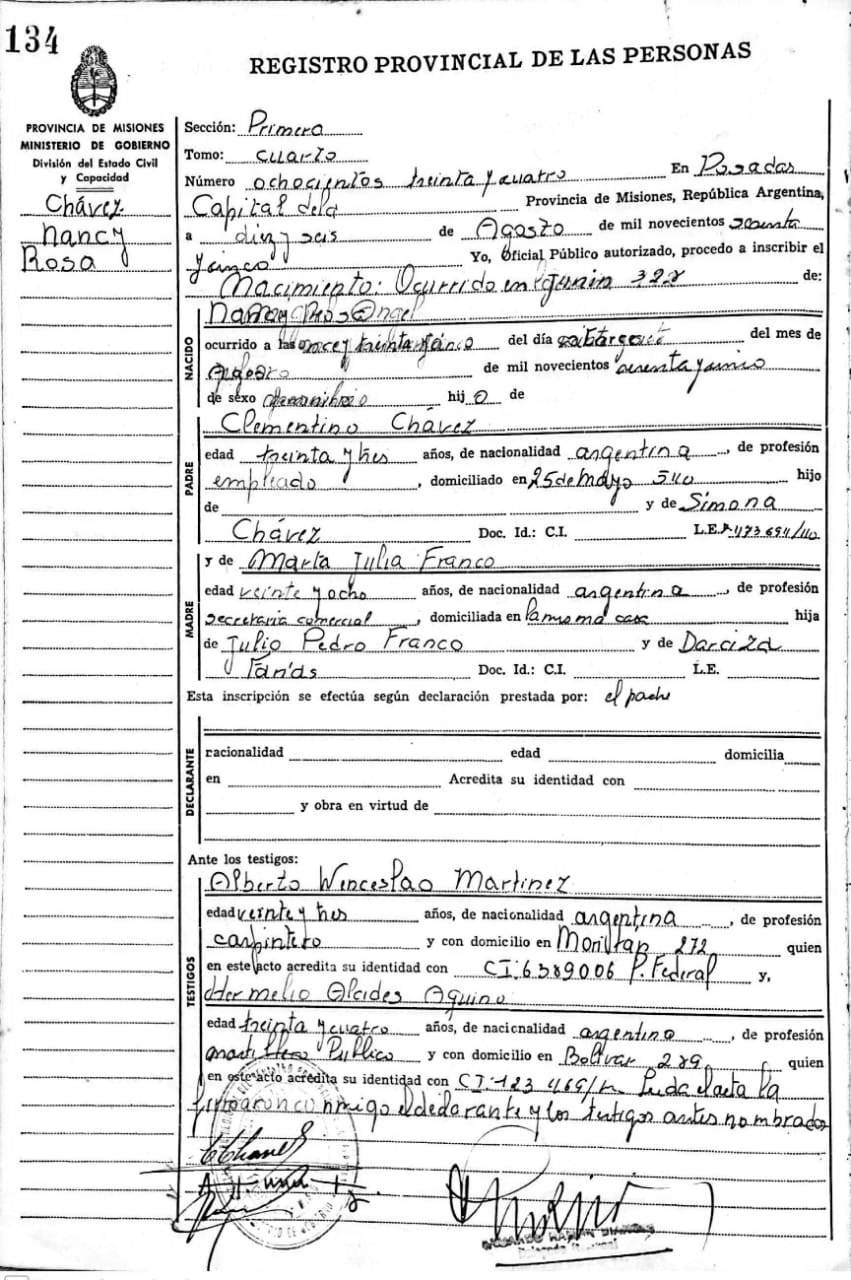 134
REGISTRO PROVINCIAL DE LAS PERSONAS
PROVINCIA DE MISIONES
MINISTERIO DE GOBIERNO
División del Estado Civil
y Capacidad
Chávez
Nancy
Rosa
Sección: Primera
Tomo: cuarto
Número ochocientos treinta y cuatro En Posadas
Capital de la Provincia de Misiones, República Argentina,
a diez y seis de Agosto de mil novecientos sesenta
y cinco Yo, Oficial Público autorizado, procedo a inscribir el
Nacimiento: Ocurrido en Junin 322 de:
NACIDO
ocurrido a las once y treinta y cinco del día del mes de
de mil novecientos sesenta y cinco
de sexo hij o de
PADRE
Clementino Chávez
edad treinta y tres años, de nacionalidad argentina, de profesión
empleado, domiciliado en 25 de Mayo 540 hijo
de y de Simona
Chávez Doc. Id.: C.I. L.E.
MADRE
y de Marta Julia Franco
edad veinte y ocho años, de nacionalidad argentina, de profesión
secretaria comercial, domiciliada en la misma casa hija
de Julio Pedro Franco y de
Doc. Id.: C.I. L.E.
Esta inscripción se efectúa según declaración prestada por: el padre
DECLARANTE
nacionalidad edad domicilia
en Acredita su identidad con
y obra en virtud de
Ante los testigos:
TESTIGOS
Alberto Wenceslao Martinez
edad veinte y tres años, de nacionalidad argentina, de profesión
carpintero y con domicilio en 272 quien
en este acto acredita su identidad con CI: 6389006 P. Federal y,
Hermelio Alcides Aquino
edad treinta y cuatro años, de nacionalidad argentino, de profesión
Publico y con domicilio en Bolivar 289 quien
en este acto acredita su identidad con CI: Leida el acta la
firmaron conmigo el declarante y los testigos antes nombrados